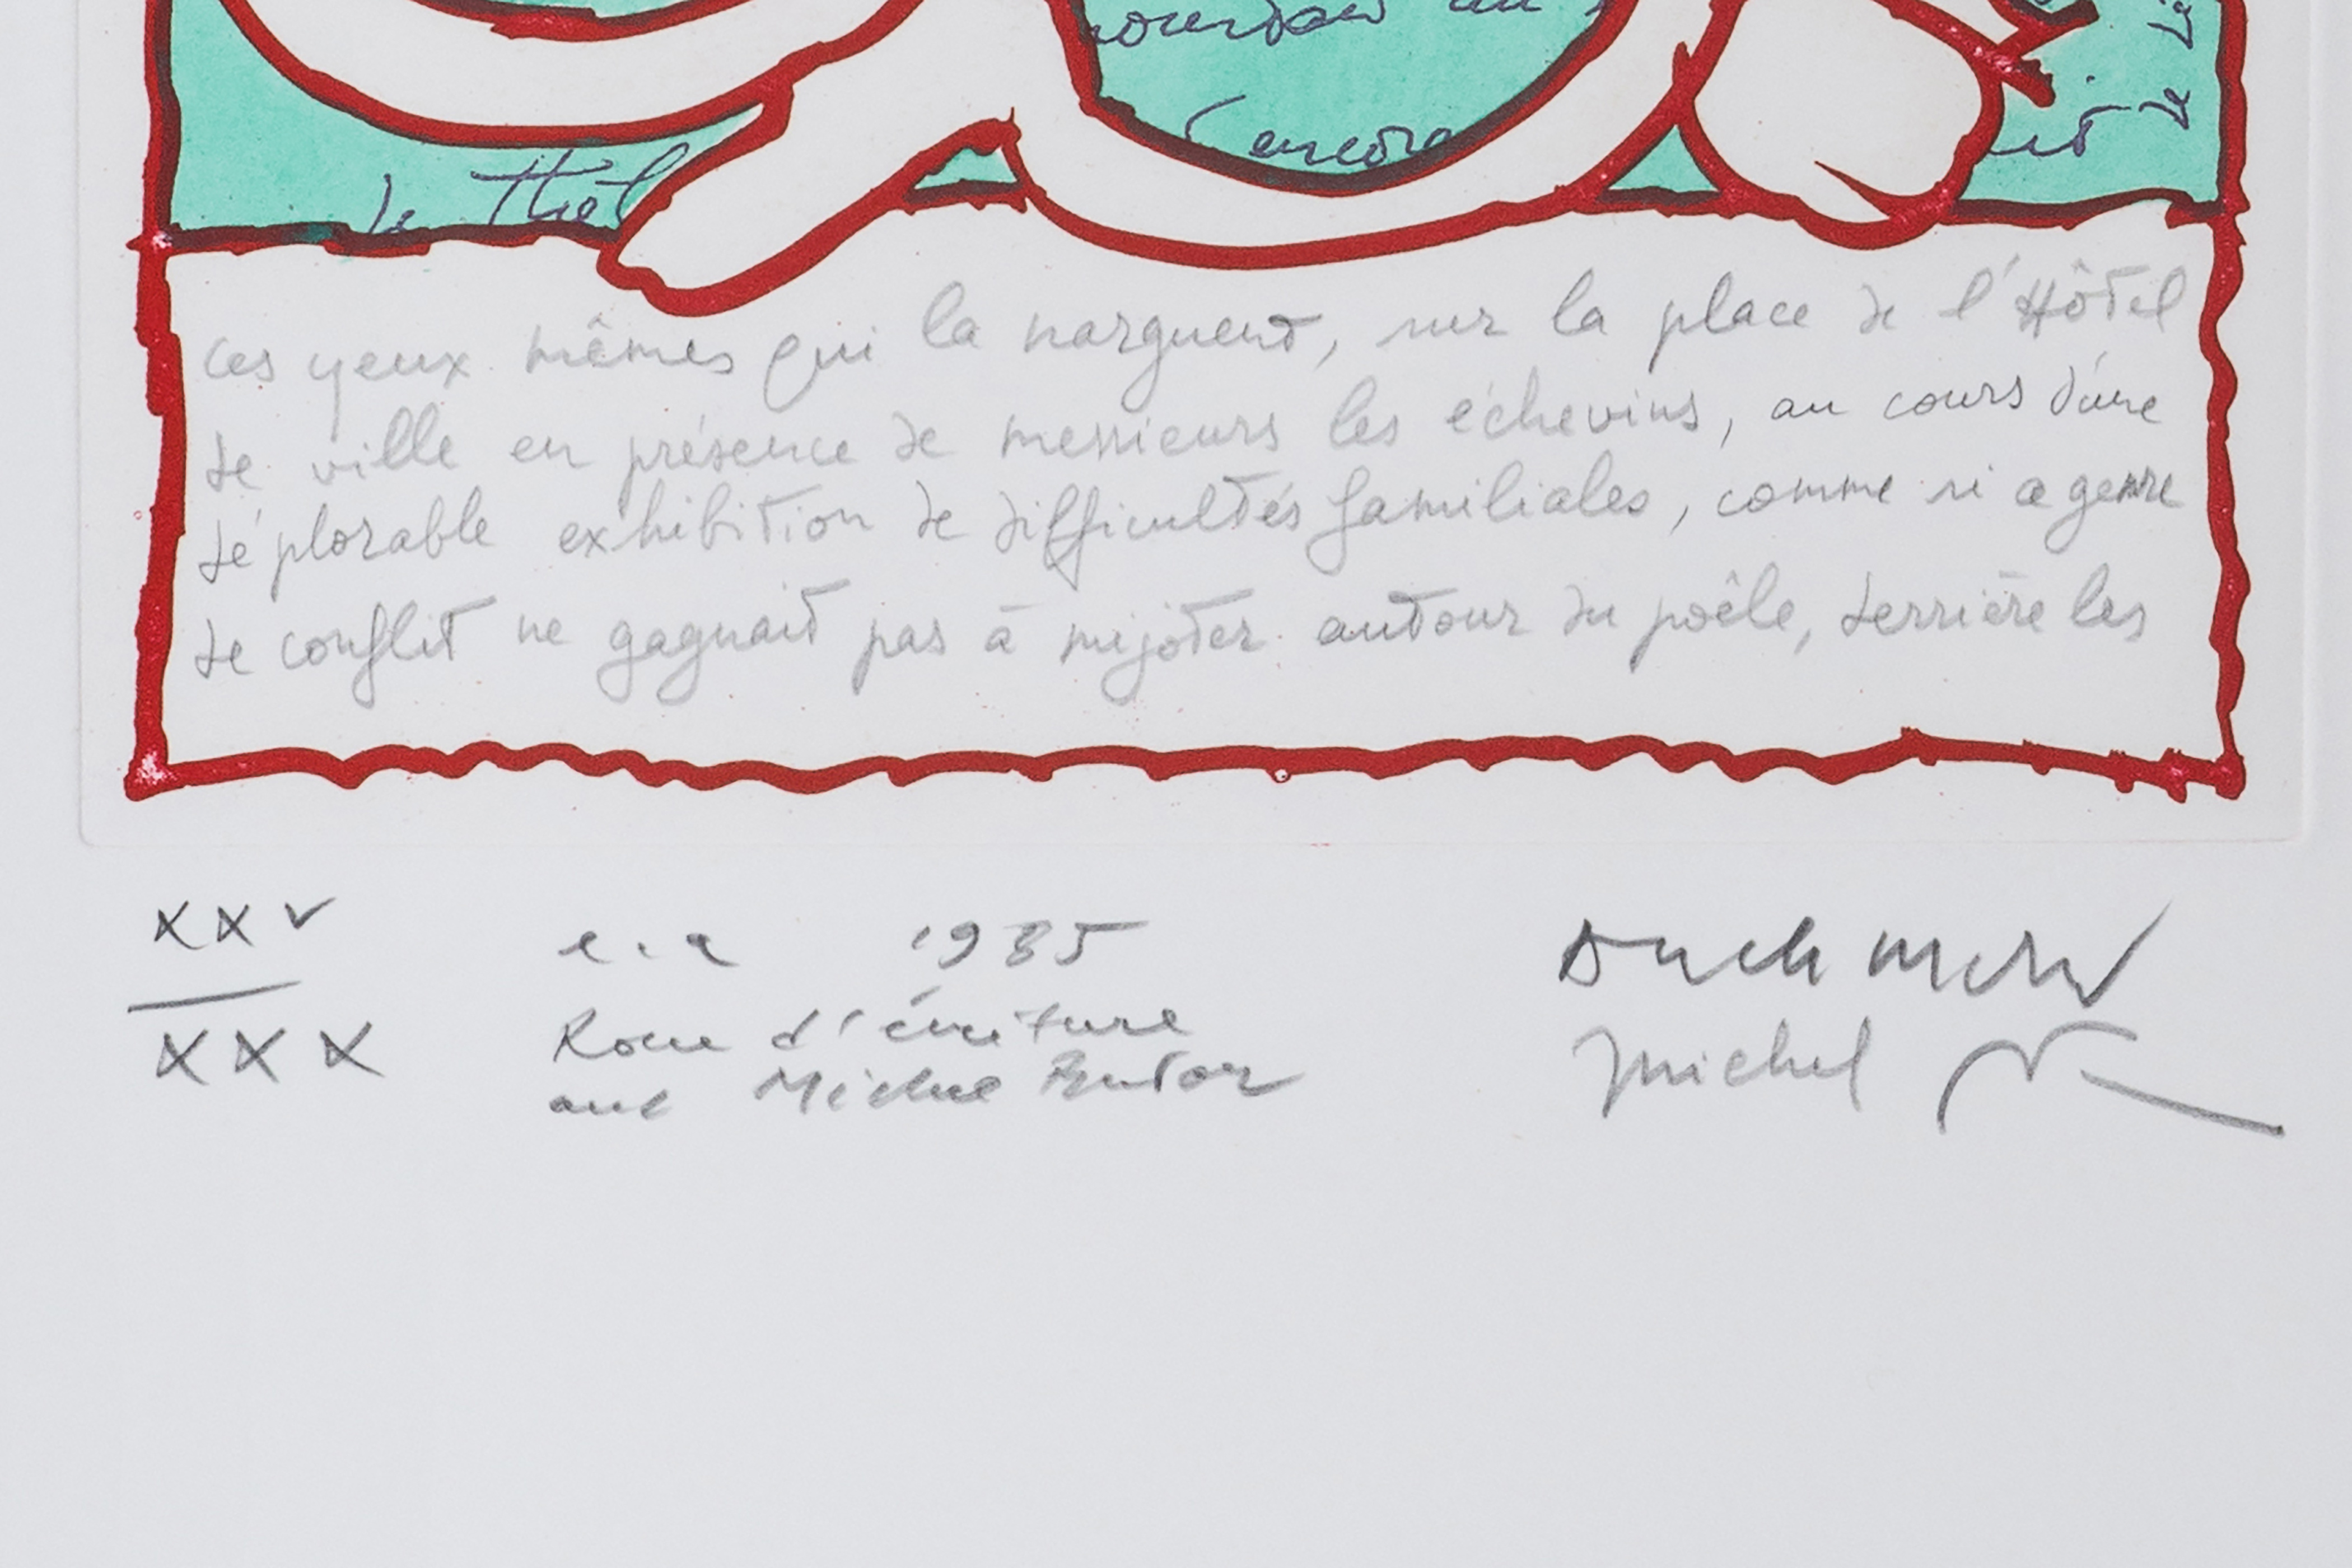 encore
ces yeux mêmes qui la narguent, sur la place de l'Hôtel
de ville en présence de messieurs les échevins, au cours d'une
déplorable exhibition de difficultés familiales, comme si ce genre
de conflit ne gagnait pas à mijoter autour du poêle, derrière les
XXV
XXX
e.a 1985
Roue d'écriture
avec Michel Butor
Alechinsky
Michel